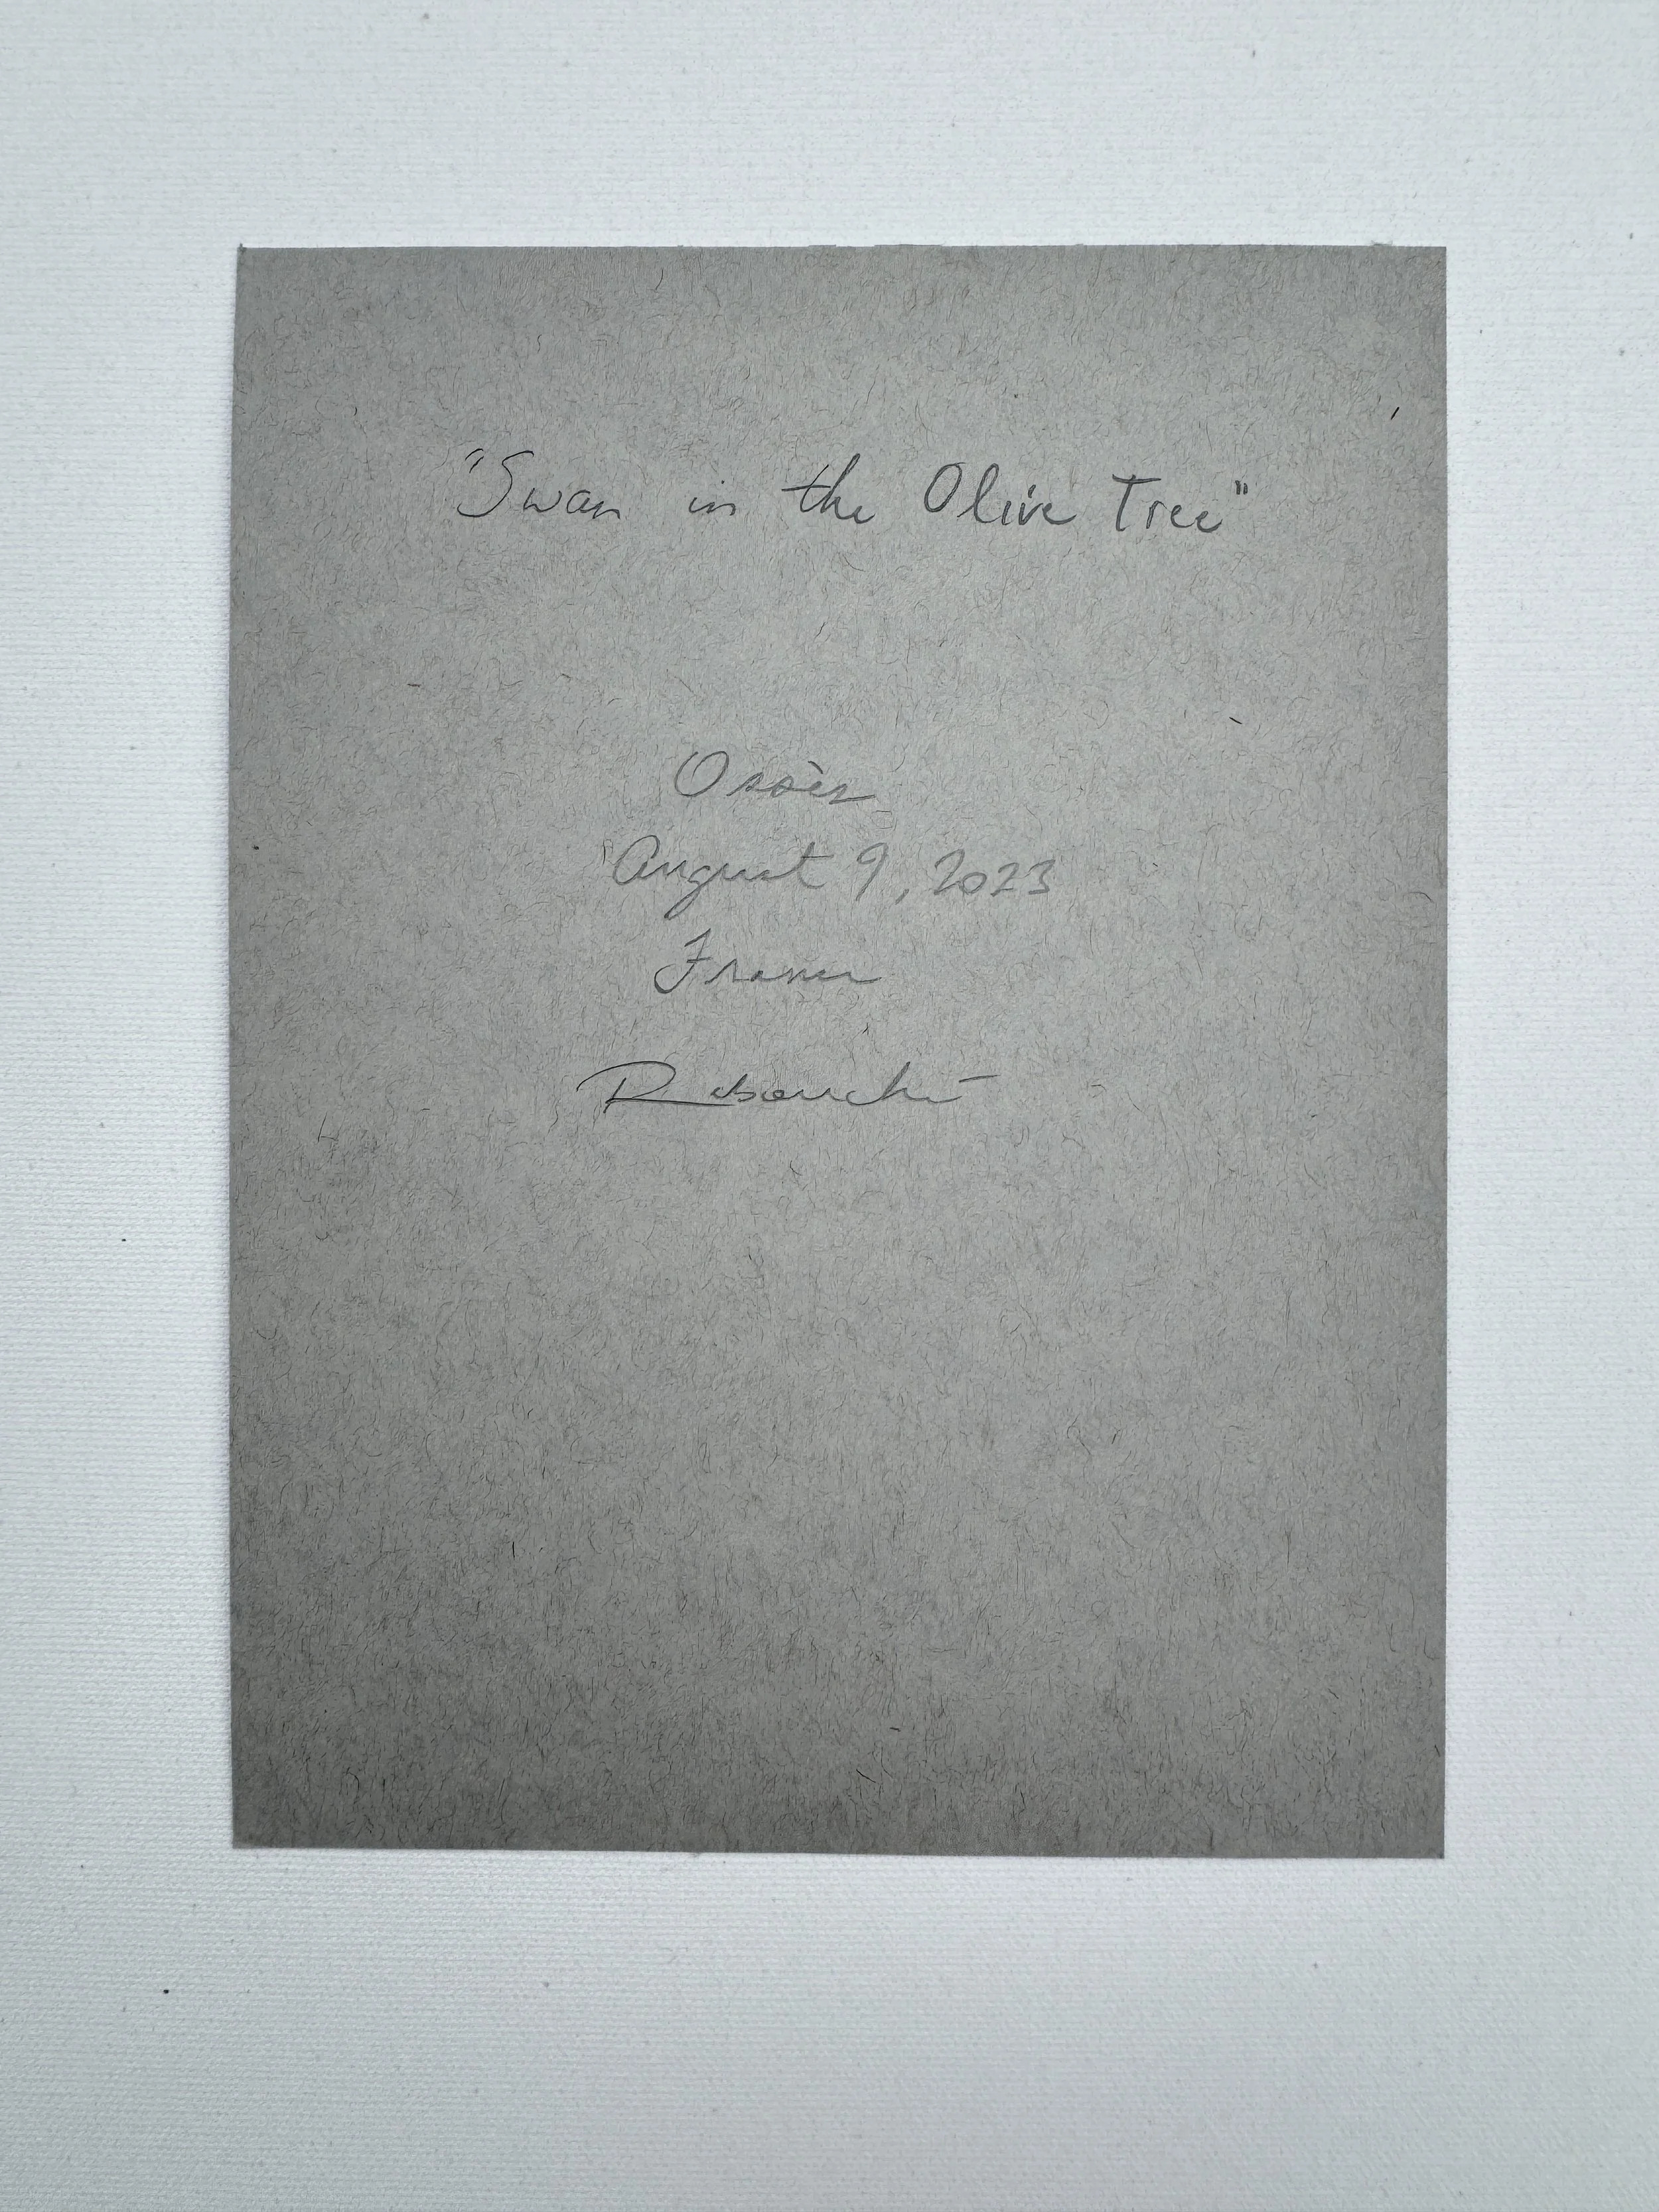 "Swan in the Olive Tree"
Ossès
August 9, 2023
France